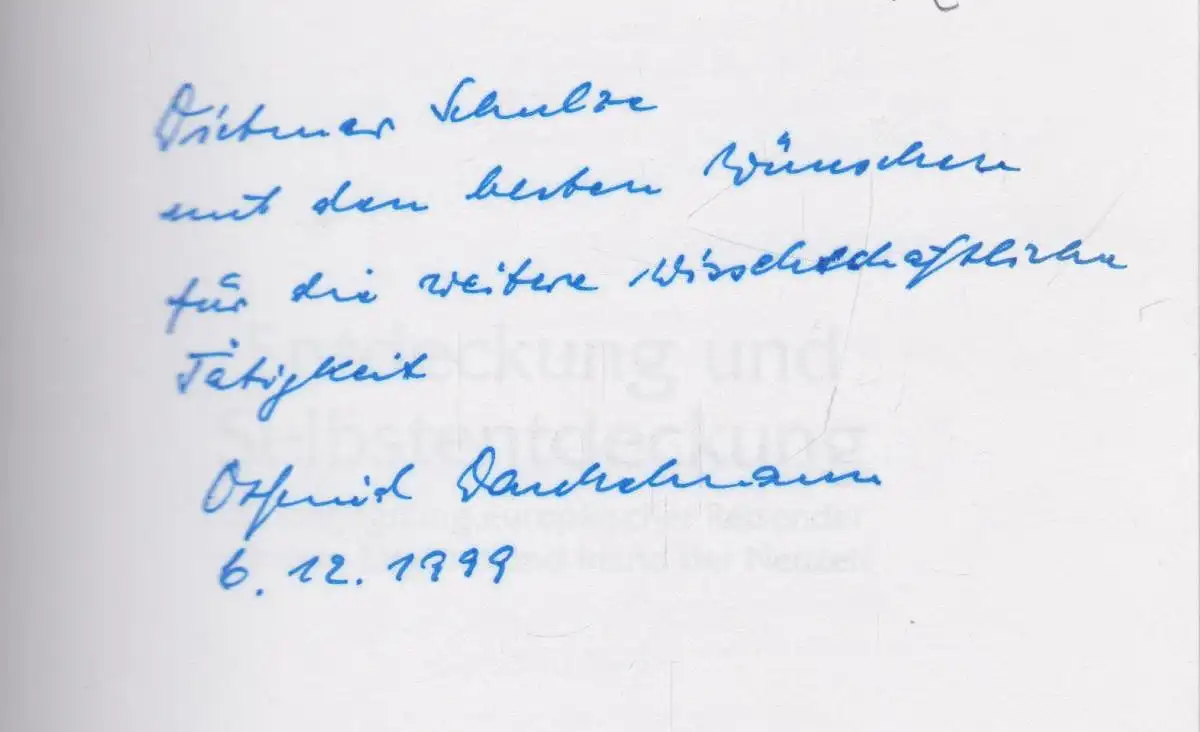 Dietmar Schulze
mit den besten Wünschen
für die weitere wissenschaftliche
Tätigkeit
Entdeckung und
Selbstentdeckung
europäischer Reisender
und in der Neuzeit
6.12.1999